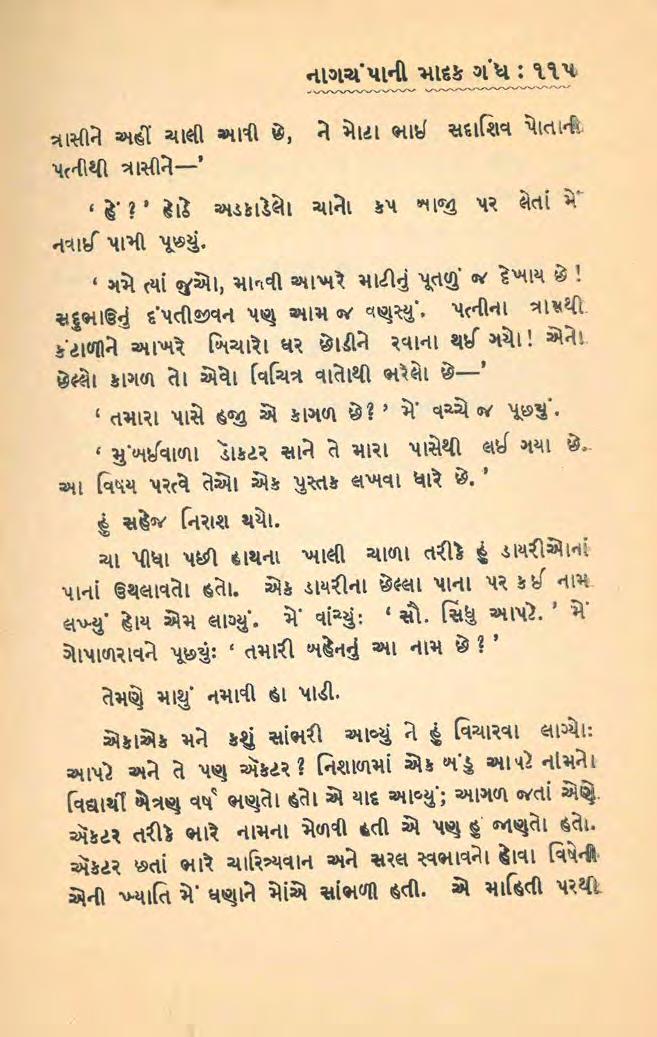 નાગચંપાની માદક ગંધ : ૧૧૫
ત્રાસીને અહીં ચાલી આવી છે, ને મોટા ભાઈ સદાશિવ પોતાની
પત્નીથી ત્રાસીને—’
‘ હેં ? ’ હોઠે અડકાડેલો ચાનો કપ બાજુ પર લેતાં મેં
નવાઈ પામી પૂછ્યું.
‘ ગમે ત્યાં જુઓ, માનવી આખરે માટીનું પૂતળું જ દેખાય છે !
સદુભાઉનું દંપતીજીવન પણ આમ જ વણસ્યું. પત્નીના ત્રાસથી
કંટાળીને આખરે બિચારો ઘર છોડીને રવાના થઈ ગયો ! એનો
છેલ્લો કાગળ તો એવો વિચિત્ર વાતોથી ભરેલો છે—’
‘ તમારા પાસે હજી એ કાગળ છે ? ’ મેં વચ્ચે જ પૂછ્યું.
‘ મુંબઈવાળા ડૉકટર સાને તે મારા પાસેથી લઈ ગયા છે.
આ વિષય પરત્વે તેઓ એક પુસ્તક લખવા ધારે છે. ’
હું સહેજ નિરાશ થયો.
ચા પીધા પછી હાથના ખાલી ચાળા તરીકે હું ડાયરીઓનાં
પાનાં ઉથલાવતો હતો. એક ડાયરીના છેલ્લા પાના પર કઈ નામ
લખ્યું હોય એમ લાગ્યું. મેં વાંચ્યું: ‘ સૌ. સિંધુ આપટે. ’ મેં
ગોપાળરાવને પૂછ્યું: ‘ તમારી બહેનનું આ નામ છે ? ’
તેમણે માથું નમાવી હા પાડી.
એકાએક મને કશું સાંભરી આવ્યું ને હું વિચારવા લાગ્યો:
આપટે અને તે પણ ઍકટર ? નિશાળમાં એક બંડુ આપટે નામનો
વિદ્યાર્થી બેત્રણ વર્ષ ભણતો હતો એ યાદ આવ્યું; આગળ જતાં એણે
ઍકટર તરીકે ભારે નામના મેળવી હતી એ પણ હું જાણતો હતો.
ઍકટર છતાં ભારે ચારિત્ર્યવાન અને સરલ સ્વભાવનો હોવા વિષેની
એની ખ્યાતિ મેં ઘણાને મોંએ સાંભળી હતી. એ માહિતી પરથી